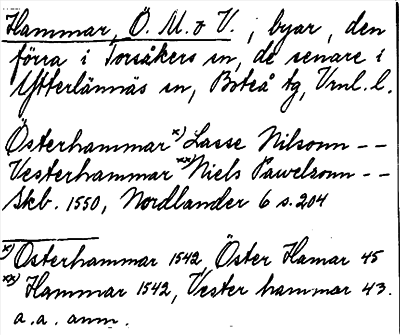 Hammar, Ö. M. & V., byar, den
förra i Torsåkers sn, de senare i
Ytterlännäs sn, Boteå tg, Vrnl. l.
Österhammar x) Lasse Nilsonn --
Vesterhammar xx) Niels Pawelsonn --
Skb. 1550, Nordlander 6 s. 204
x) Osterhammar 1542, Öster Hamar 45
xx) Hammar 1542, Vester hammar 43.
a. a. anm.